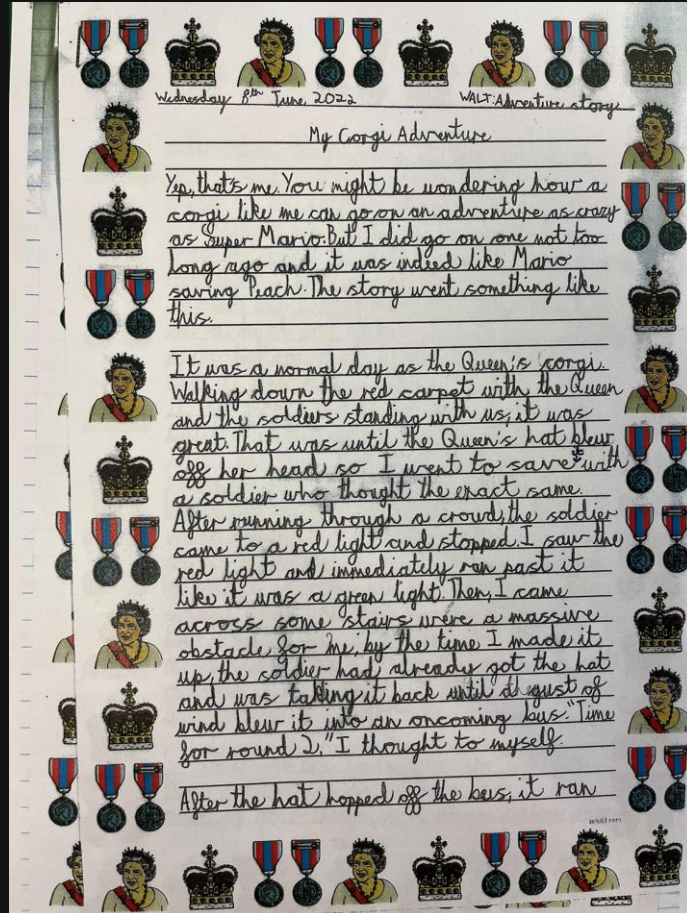 Wednesday 8th June 2022
WALT: Adventure story
My Corgi Adventure
Yep, that's me. You might be wondering how a
corgi like me can go on an adventure as crazy
as Super Mario. But I did go on one not too
long ago and it was indeed like Mario
saving Peach. The story went something like
this.
It was a normal day as the Queen's corgi.
Walking down the red carpet with the Queen
and the soldiers standing with us, it was
great. That was until the Queen's hat blew
off her head so I went to save it with
a soldier who thought the exact same.
After running through a crowd, the soldier
came to a red light and stopped. I saw the
red light and immediately ran past it
like it was a green light. Then, I came
across some stairs were a massive
obstacle for me, by the time I made it
up, the soldier had already got the hat
and was taking it back until the gust of
wind blew it into an oncoming bus. "Time
for round 2," I thought to myself.
After the hat hopped off the bus, it ran